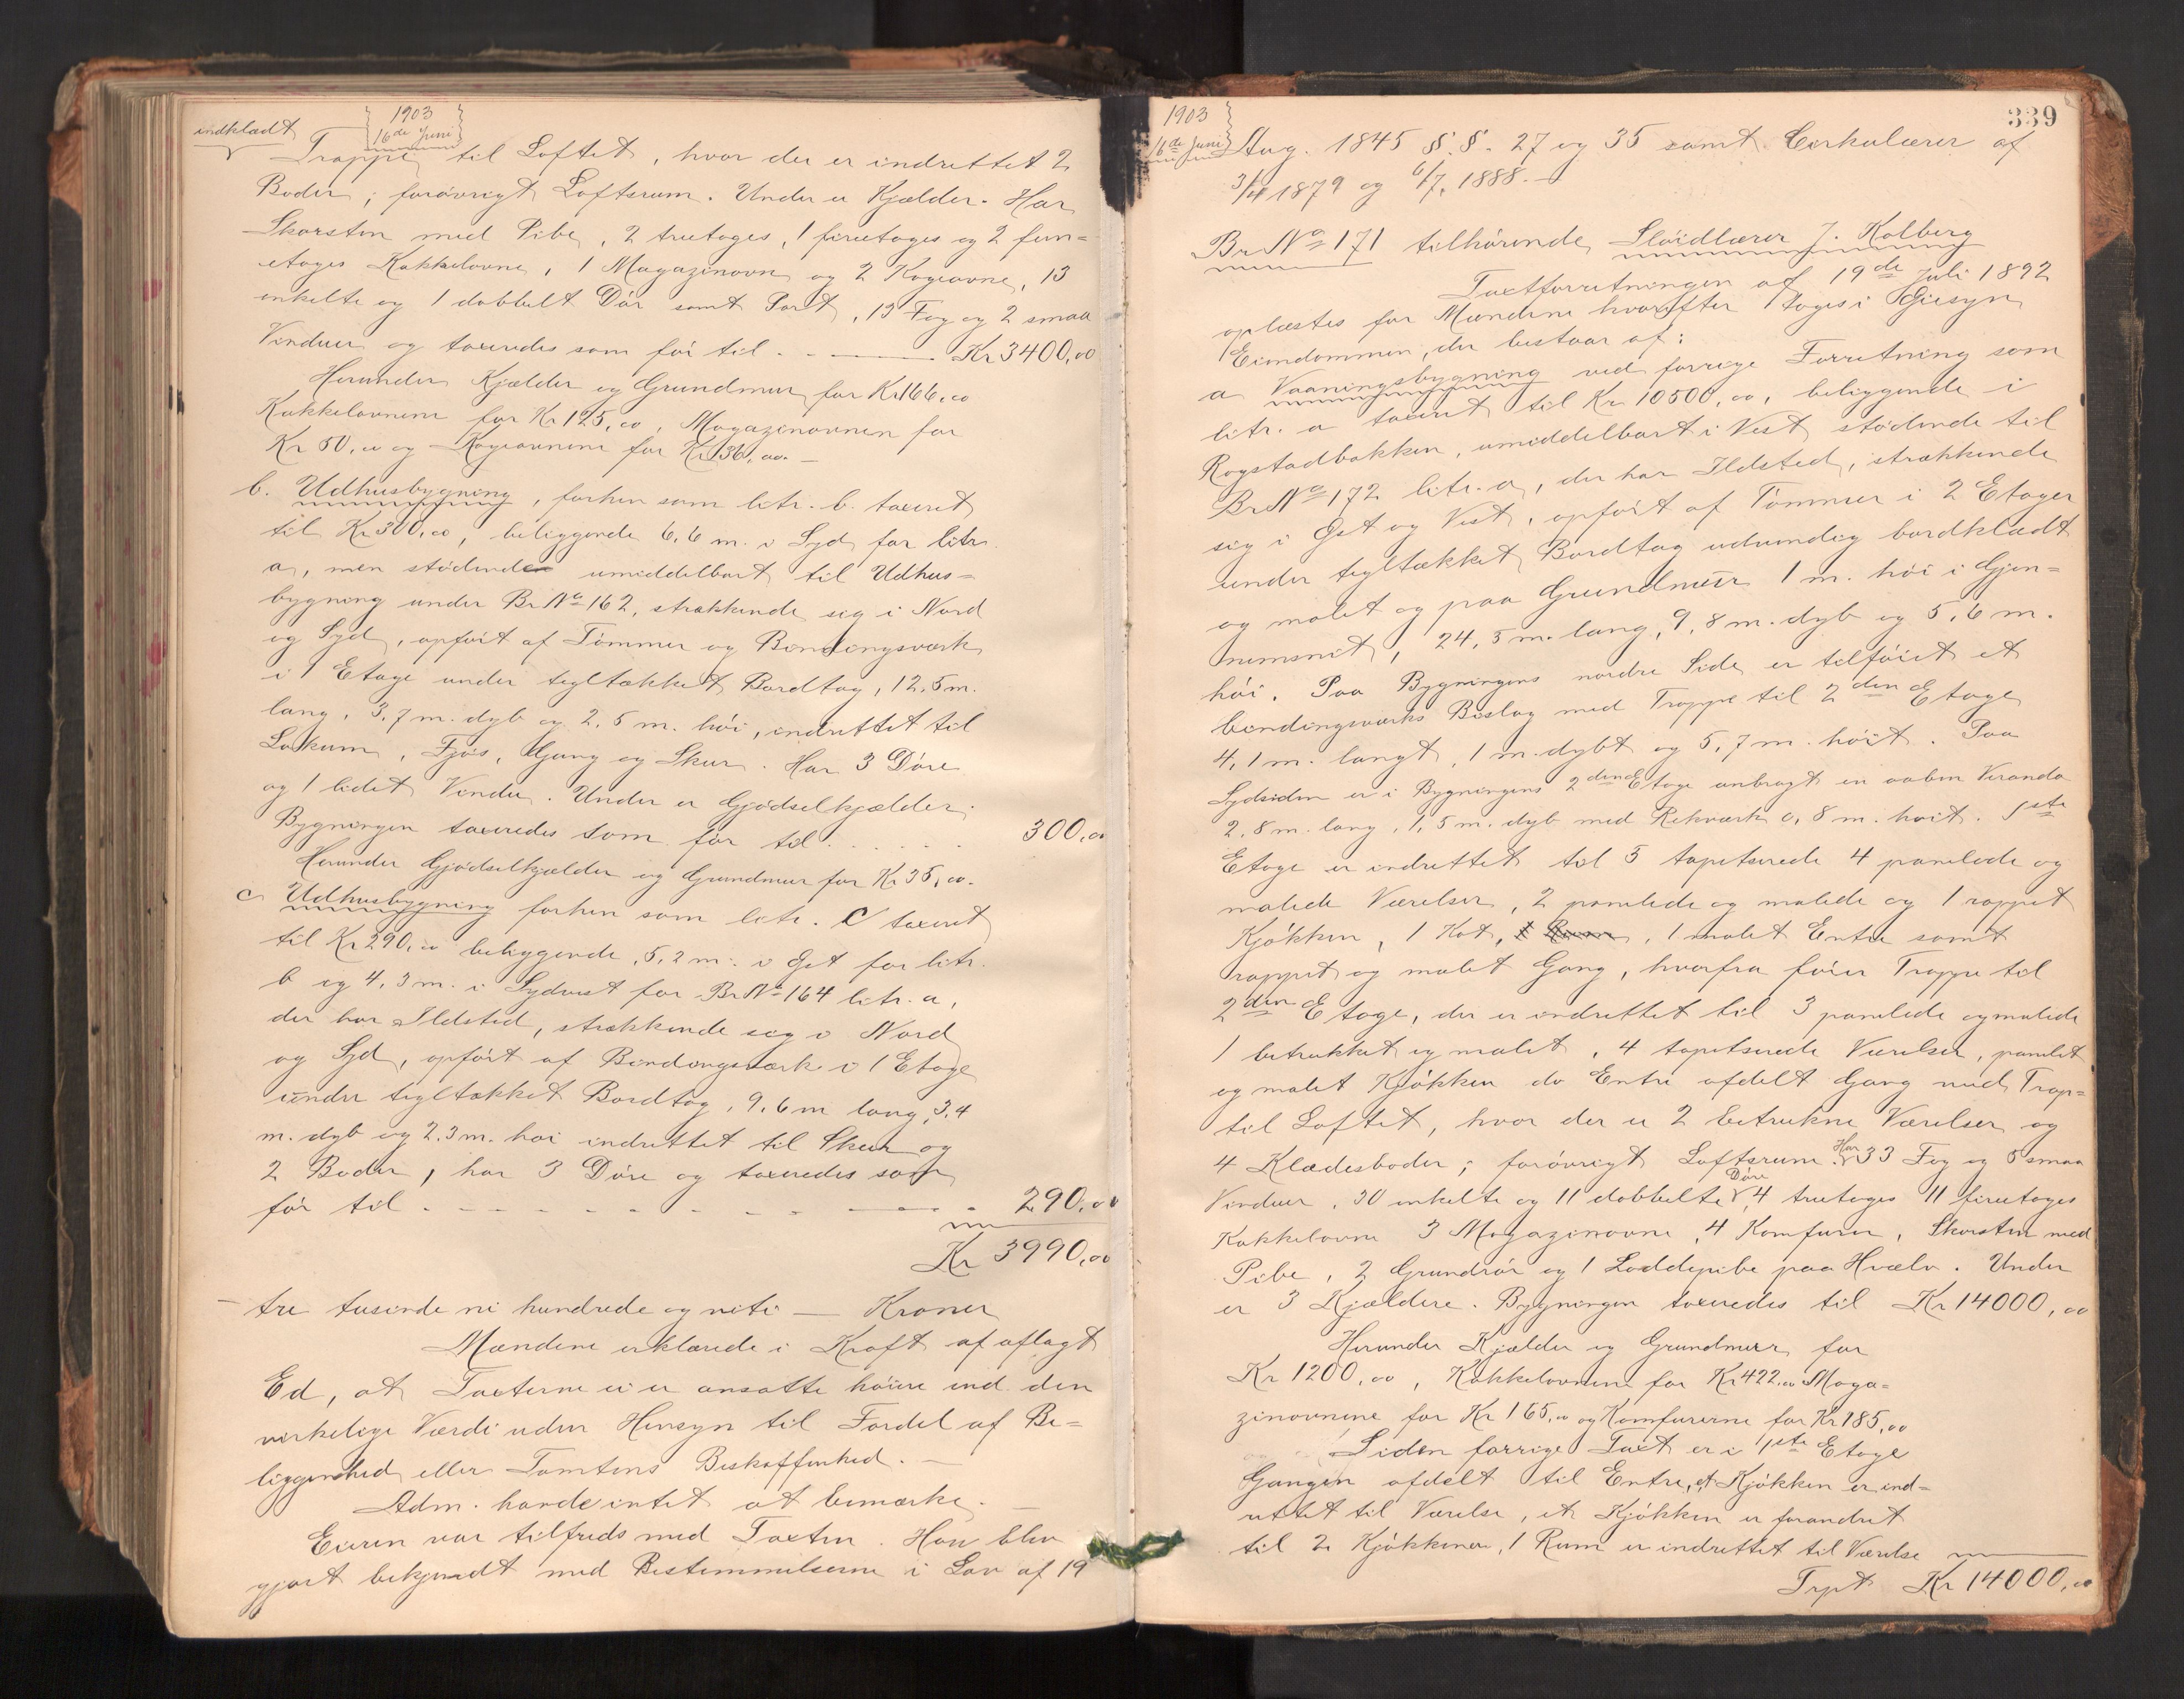 1903
16de Juni
indklædt
Trappe til Loftet, hvor der er indrettet 2
Boder; forøvrigt Loftsrum. Under er Kjælder. Har
Skorsten med Pibe, 2 treetages, 1 fireetages og 2 fem=
etages Kakkelovne, 1 Magazinovn og 2 Kogeovne, 13
enkelte og 1 dobbelt Dør samt Port, 13 Fag og 2 smaa
Vinduer og taxeredes som før til . - — Kr 3400,00
Herunder Kjælder og Grundmur for Kr 166,00
Kakkelovnene for Kr 125,00, Magazinovnen for
Kr 50,00 og Kogeovnene for Kr 36,00. —
b. Udhusbygning, forhen som litr. b. taxeret
til Kr 300,00, beliggende 6,6 m. i Syd for litr.
a, men stødende umiddelbart til Udhus=
bygning under Br No 162, strækkende sig i Nord
og Syd, opført af Tømmer og Bindingsværk
i 1 Etage under tegltækket Bordtag, 12,5 m.
lang, 3,7 m. dyb og 2,5 m. høi, indrettet til
Lokum, Fjøs, Gang og Skur. Har 3 Døre
og 1 lidet Vindu. Under er Gjødselkjælder.
Bygningen taxeredes som før til . . . . . . 300,00
Herunder Gjødselkjælder og Grundmur for Kr 35,00.
c Udhusbygning forhen som litr. c taxeret
til Kr 290,00 beliggende, 5,2 m. i Øst for litr.
b og 4,3 m. i Sydvest for Br No 164 litr. a,
der har Ildsted, strækkende sig i Nord
og Syd, opført af Bindingsværk i 1 Etage
under tegltækket Bordtag, 9,6 m lang, 3,4
m. dyb og 2,3 m. høi indrettet til Skur og
2 Boder, har 3 Døre og taxeredes som
før til . - - - - - - - - 290,00
Kr 3990,00
– tre tusinde ni hundrede og niti — Kroner
Mændene erklærede i Kraft af aflagt
Ed, at Taxterne ei er ansatte høiere end den
virkelige Værdi uden Hensyn til Fordel af Be=
liggenhed eller Tomtens Beskaffenhed. —
Adm. havde intet at bemærke. —
Eieren var tilfreds med Taxten. Han blev
gjort bekjendt med Bestemmelserne i Lov af 19
1903
16de Juni
339
Aug. 1845 §.§. 27 og 35 samt Cirkulærer af
3/4 1879 og 6/7. 1888. —
Br No 171 tilhørende Sløidlærer J. Kolberg
Taxtforretningen af 19de Juli 1892
oplæstes for Mændene hvorefter toges i Øiesyn
Eiendommen, der bestaar af:
a Vaaningsbygning ved forrige Forretning som
litr. a taxeret til Kr 10500,00, beliggende i
Rogstadbakken, umiddelbart i Vest stødende til
Br No 172 litr. a, der har Ildsted, strækkende
sig i Øst og Vest, opført af Tømmer i 2 Etager
under tegltækket Bordtag udvendig bordklædt
og malet og paa Grundmur 1 m. høi i Gjen=
nemsnit, 24,5 m. lang, 9,8 m. dyb og 5,6 m.
høi. Paa Bygningens nordre Side er tilføiet et
bindingsværks Bislag med Trappe til 2den Etage
4,1 m. langt, 1 m. dybt og 5,7 m. høit. Paa
Sydsiden er i Bygningens 2den Etage anbragt en aaben Veranda
2,8 m. lang, 1,5 m. dyb med Rekværk 0,8 m. høit. 1ste
Etage er indrettet til 5 tapetserede 4 panelede og
malede Værelser, 2 panelede og malede og 1 rappet
Kjøkken, 1 Kot, 1 malet Entre samt
rappet og malet Gang, hvorfra fører Trappe til
2den Etage, der er indrettet til 3 panelede og malede
1 betrukket og malet, 4 tapetserede Værelser, panelet
og malet Kjøkken do Entre afdelt Gang med Trap=
til Loftet, hvor der er 2 betrukne Værelser og
4 Klædesboder; forøvrigt Loftsrum. Har 33 Fag og 5 smaa
Vinduer, 30 enkelte og 11 dobbelte Døre, 4 treetages 11 fireetages
Kakkelovne 3 Magazinovne, 4 Komfurer, Skorsten med
Pibe, 2 Grundrør og 1 Loddepibe paa Hvælv. Under
er 3 Kjældere. Bygningen taxeredes til Kr 14000,00
Herunder Kjælder og Grundmur for
Kr 1200,00, Kakkelovnene for Kr 422,00 Maga=
zinovnene for Kr 165,00 og Komfurerne for Kr 185,00
Siden forrige Taxt er i 1ste Etage
Gangen afdelt til Entre, et Kjøkken er ind=
rettet til Værelse, et Kjøkken er forandret
til 2 Kjøkkener, 1 Rum er indrettet til Værelse
Trpt Kr 14000,00